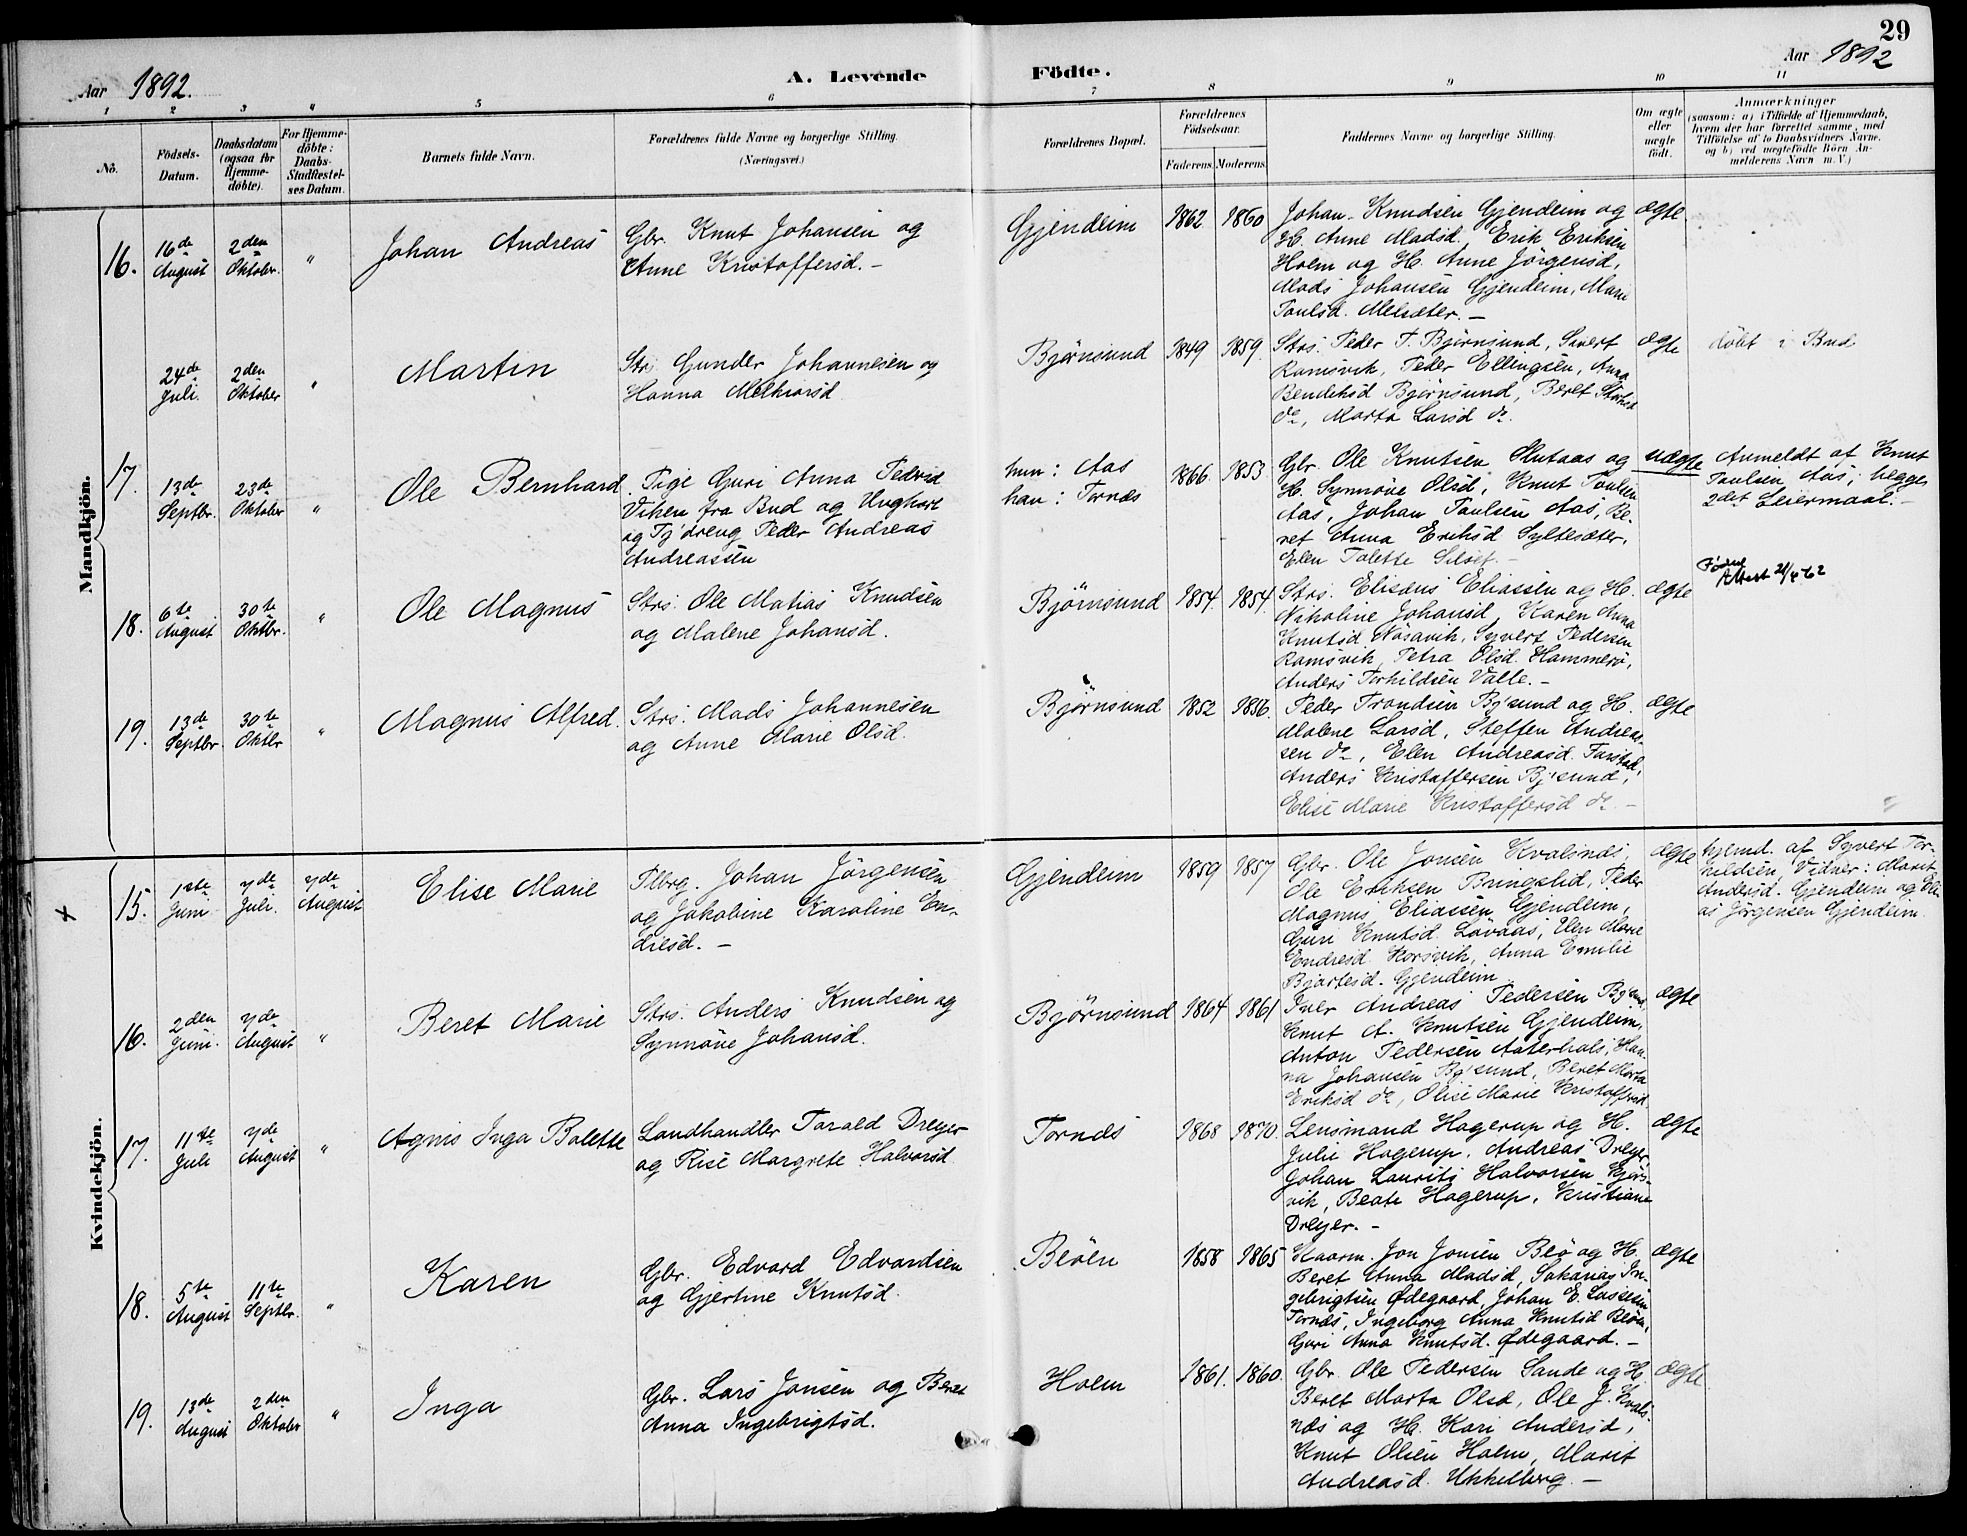 29
Aar 1892.
A. Levende Födte.
Aar 1892
1 2 3 4 5 6 7 8 9 10 11
No.
Födsels-Datum.
Daabsdatum (ogsaa for Hjemme-döbte).
For Hjemme-döbte: Daabs-Stadfæstel-ses Datum.
Barnets fulde Navn.
Forældrenes fulde Navne og borgerlige Stilling.
(Næringsvei.)
Forældrenes Bopæl.
Forældrenes Födselsaar.
Faderens. Moderens.
Faddernes Navne og borgerlige Stilling.
Om ægte eller uægte födt.
Anmærkninger
(saasom: a) i Tilfælde af Hjemmedaab, hvem der har forrettet samme, med Tilföielse af to Daabsvidners Navne. og b) ved uægtefödte Börn An-melderens Navn m. V.)
Mandkjön.
16. 16de August 2den Oktober. " Johan Andreas
Gbr. Knut Johansen og
Anne Kristoffersd. -
Gjendeim 1862 1860
Johan Knudsen Gjendeim og
H. Anne Madsd., Erik Eriksen
Holm og H. Anne Jørgensd,
Mads Johansen Gjendeim, Marie
Poulsd. Melsæter. -
ægte.
24de Juli. 2den Oktober " Martin
Strs. Gunder Johannesen og
Hanna Melkiorsd.
Bjørnsund 1849 1859
Strs. Peder T. Bjørnsund, Sivert
Ramsvik, Peder Ellingsen, Anna
Bendiksd Bjørnsund, Beret
do, Marta Larsd do.
ægte
döbt i Bud
17. 13de Septbr. 23de Oktober " Ole Bernhard
Pige Guri Anna Pedersd
Viken fra Bud og Ungkarl
og Tj'dreng Peder Andreas
Andreassen
hun: Aas
han: Tornæs
1866 1853
Gbr. Ole Knutsen Slutaas og
H. Synnöve Olsd, Knut Poulsen
Aas, Johan Paulsen Aas, Be-
ret Anna Eriksd Syltesæter,
Elen Talette Silset. -
uægte
Anmeldt af Knut
Paulsen Aas; begges
2det Leiermaal. -
18. 6te August 30te Oktbr. " Ole Magnus
Strs. Ole Matias Knudsen
og Malene Johansd.
Bjørnsund 1854. 1854.
Strs. Elisæus Eliassen og H.
Nikoline Johansd, Karen Anna
Knutsd Næsavik, Syvert Pedersen
Ramsvik, Petra Olsd. Hammerø,
Anders Torkildsen Valle. -
ægte
Attest 21/4 62
19. 13de Septbr. 30te Oktbr " Magnus Alfred.
Strs. Mads Johannesen
og Anne Marie Olsd.
Bjørnsund 1852 1856.
Peder Trondsen Bj'sund og H.
Malene Larsd, Steffen Andreas-
sen do, Elen Andreasd. Farstad,
Anders Kristoffersen Bj'sund,
Elise Marie Kristoffersd do. -
ægte
Kvindekjön.
15. 1ste Juni 7de Juli. 7de August Elise Marie
Plbrg. Johan Jörgensen
og Jakobine Karoline En-
dresd. -
Gjendeim 1859 1857
Gbr. Ole Jonsen Kvalsnæs,
Ole Eriksen Bringslid, Peder
Magnus Eliassen Gjendeim,
Guri Knutsd. Løvaas, Elen Marie
Endresd. Korsvik, Anna Emilie
Bjartesd. Gjendeim
ægte
hjemd. af Syvert Tor-
kildsen, Vidner: Marit
Andersd. Gjendeim og Eli-
as Jörgensen Gjendeim
16. 2den Juni. 7de August " Beret Marie
Strs. Anders Knudsen og
Synnöve Johansd.
Bjørnsund 1864 1861
Iver Andreas Pedersen Bj'sund,
Knut A. Knutsen Gjendeim,
Anton Pedersen Aaterhals, Han-
na Johansen Bj'sund, Beret Marta
Eriksd do, Olise Marie Kristoffersd
ægte
17. 11te Juli 7de August " Agnis Inga Bolette
Landhandler Tarald Dreyer
og Rise Margrete Halvorsd
Tornæs 1868 1870.
Lensmand Hagerup og H.
Julie Hagerup, Andreas Dreyer
Johan Laurits Halvorsen Gjørs-
vik, Beate Hagerup, Kristiane
Dreyer. -
ægte
18. 5te August 11te Septbr. " Karen
Gbr. Edvard Edvardsen
og Gjertine Knutsd.
Beöen 1858 1865
Kaarm. Jon Jonsen Beö og H.
Beret Anna Madsd, Sakarias In-
gebrigtsen Ødegaard, Johan E. Lassesen
Tornæs, Ingeborg Anna Knutsd Beöen,
Guri Anna Knutsd. Ødegaard. -
ægte
19. 13de August 2den Oktober " Inga
Gbr. Lars Jonsen og Beret
Anna Ingebrigtsd.
Holm 1861. 1860.
Gbr. Ole Pedersen Sande og H.
Beret Marta Olsd, Ole J. Kvals-
næs og H. Kari Andersd,
Knut Olsen Holm, Marit
Andreasd. Ukkelberg. -
ægte